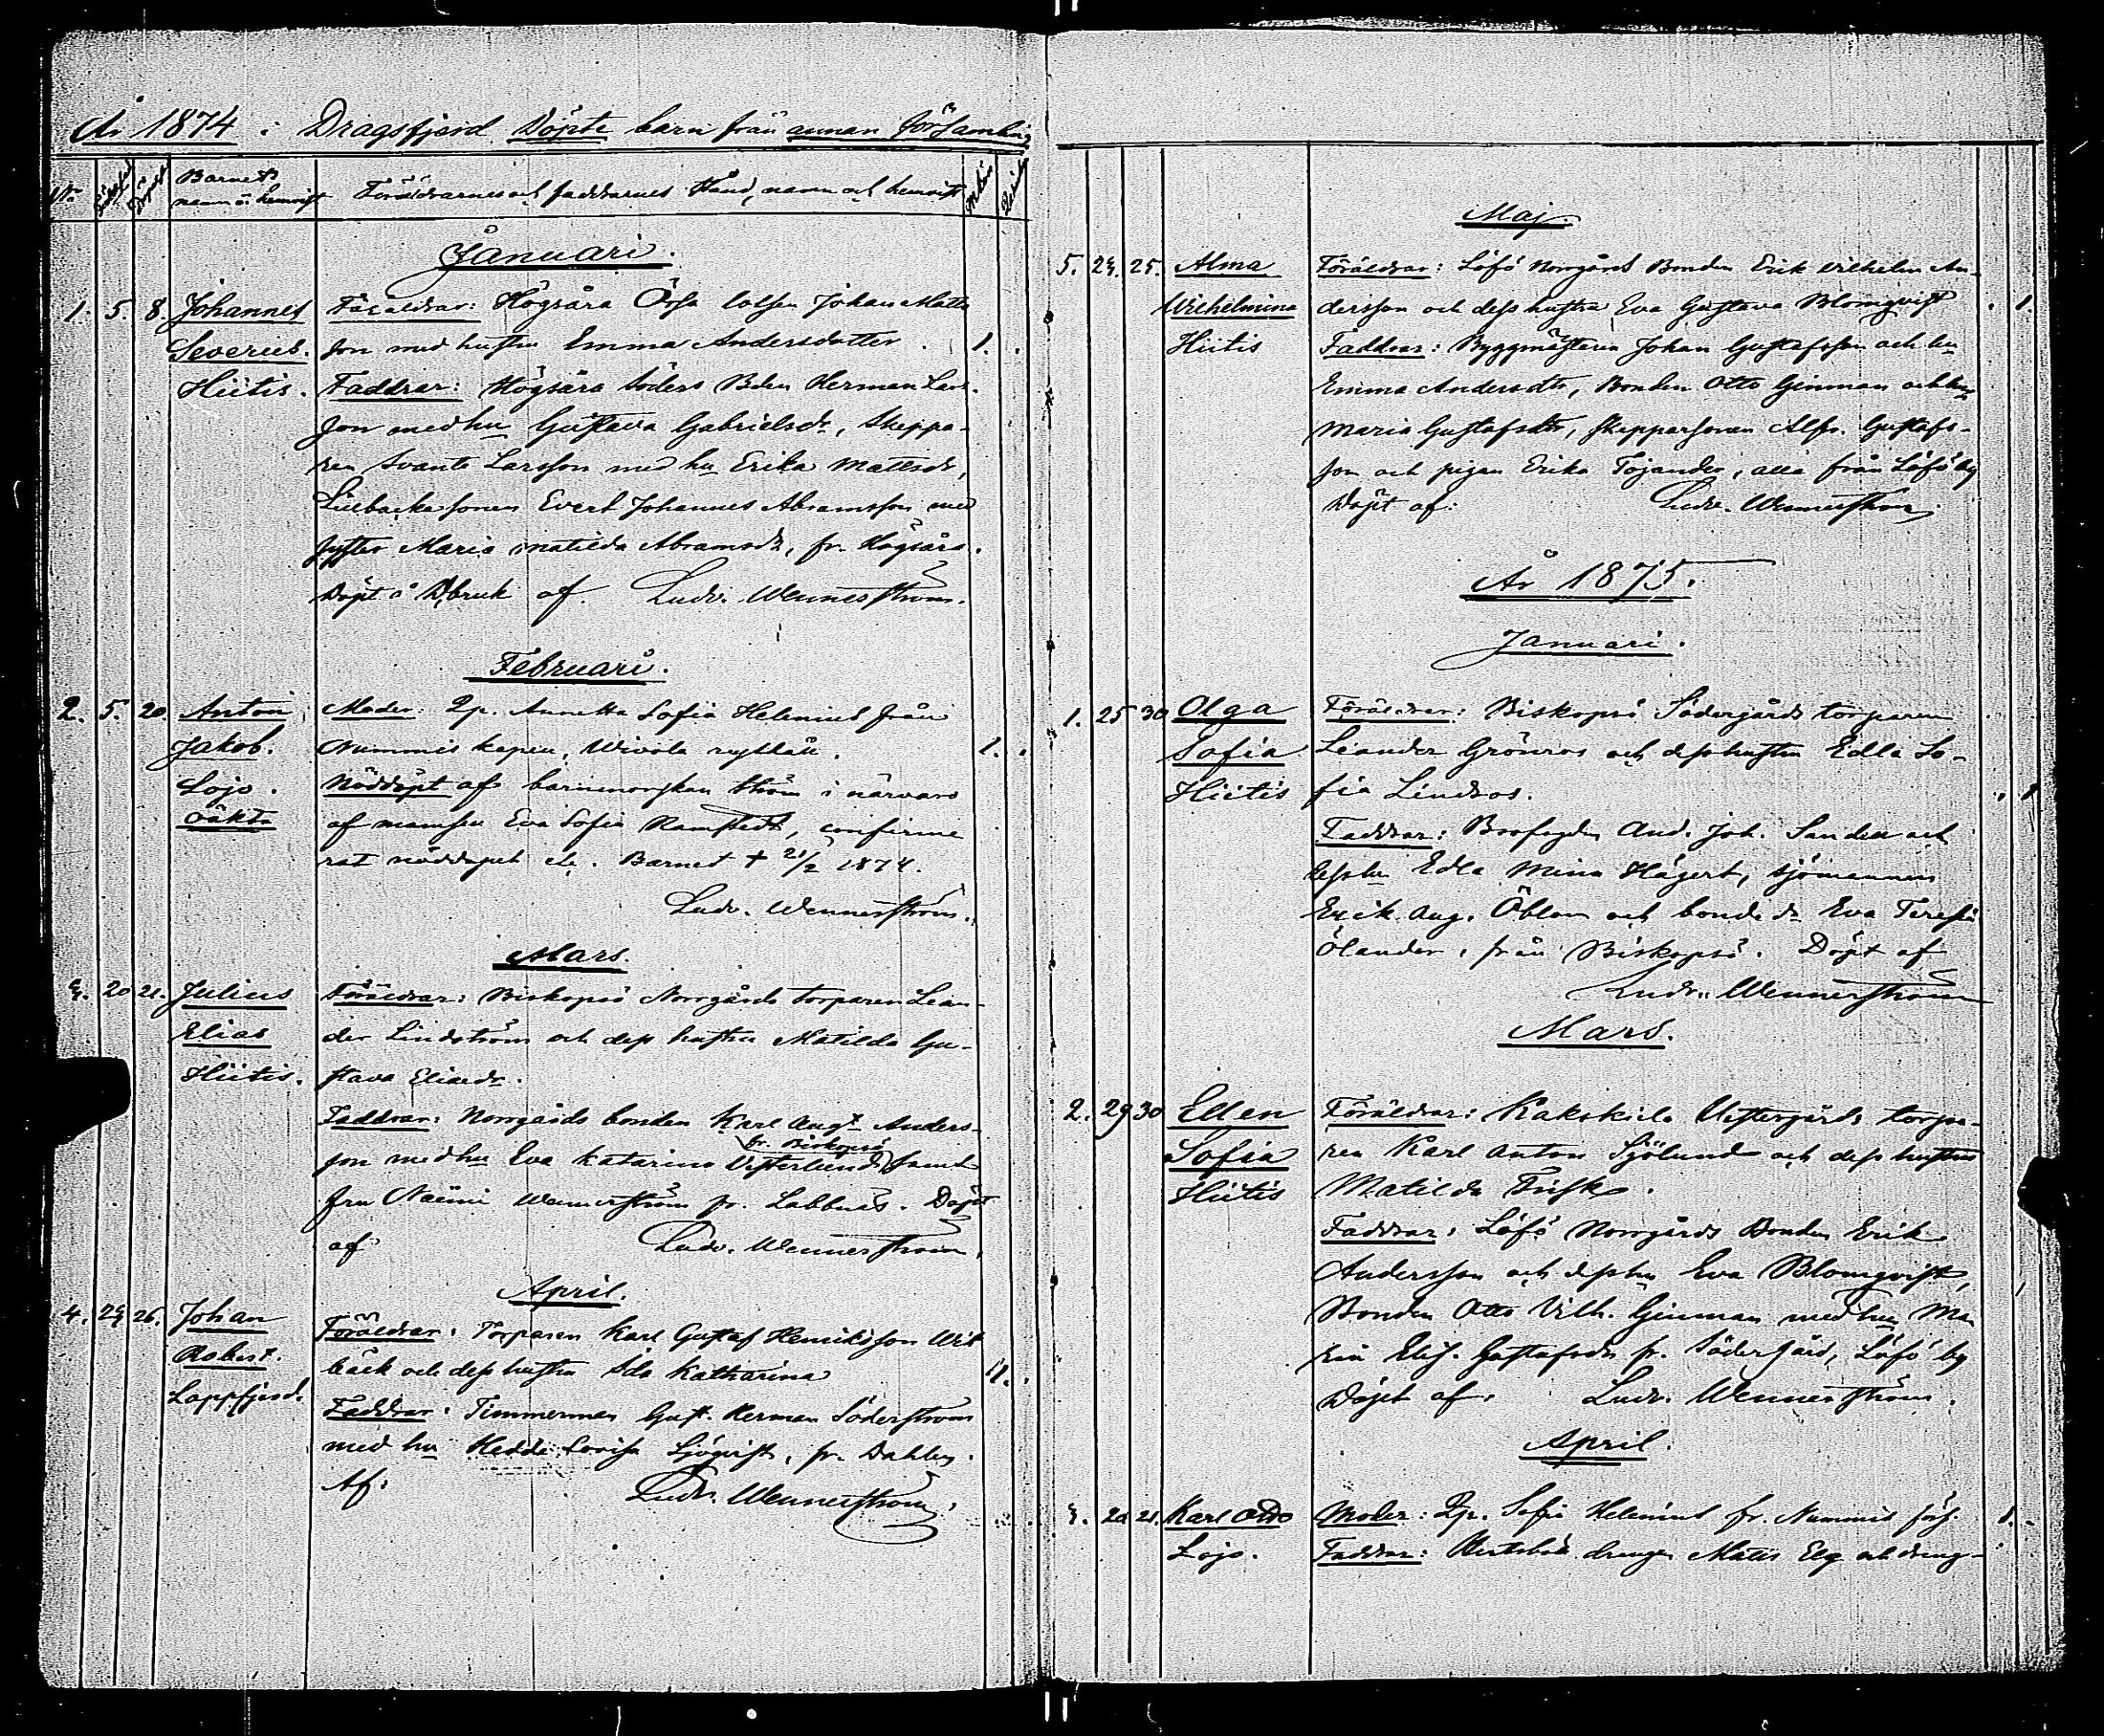 År 1874 i Dragsfjerd Döpte barn från annan församling
No Födelse Döpelse Barnets namn o. hemvist Föräldrarnes och faddrarnes stånd, namn och hemvist Mankön Qvinkön
Januari.
1. 5. 8. Johannes Föräldrar: Högsåra Örså lotsen Johan Matts
Severus. son med hustru Emma Andersdotter. 1.
Hiitis. Faddrar: Högsåra Söders Bden Herman Lars-
son med hu Gustava Gabrielsdr, Skeppa-
ren Svante Larsson med hu Erika Mattsdr,
Evert Johannes Abramsson med
syster Maria Matilda Abramsdr, fr. Högsåra.
Döpt å Dbruk af Ludv. Wennerström.
Februari.
2. 5. 20. Anton Moder: Qp. Annetta Sofia Helenius från
Jakob. Nummis kapell, Wivola 1.
Lojo. Nöddöpt af barnmorskan Ström i närvaro
oäkta af mamsell Eva Sofia Ramstedt, confirme
rat nöddopet etc. Barnet + 21/2 1874.
Ludv. Wennerström.
Mars.
3. 20 21. Julius Föräldrar: Biskopsö Norrgårds torparen Lean-
Elias der Lindström och dess hustru Matilda Gu-
Hiitis. stava Eliasdr.
Faddrar: Norrgårds bonden Karl Augt Anders-
fr. Biskopsö
son med hu Eva Katarina Vesterlund samt
fru Naëmi Wennerström fr. Labbnäs. Döpt
af Ludv. Wennerström.
April.
4. 24 26. Johan Föräldrar: Torparen Karl Gustaf Henriksson Wit
Robert. bäck och dess hustru Ida Katharina 1.
Lappfjerd. Faddrar: Timmerman Gust. Herman Söderström
med hu Hedda Lovisa Sjöqvist, fr. Dahlby.
Af: Ludv. Wennerström.
Maj.
5. 24. 25. Alma Föräldrar: Löfö Norrgårds Bonden Erik Wilhelm An-
Wilhelmina dersson och dess hustru Eva Gustava Blomqvist 1.
Hiitis Faddrar: Byggmästaren Johan Gustafsson och hu
Emma Andersdtr, Bonden Otto Ginman och hu
Maria Gustafsdtr, skepparsonen Alfr. Gustafs-
son och pigan Erika Tojander, alla från Löfö by
Döpt af: Ludv. Wennerström.
År 1875.
Januari.
1. 25 30 Olga Föräldrar: Biskopsö Södergårds torparen
Sofia Leander Grönros och dess hustru Edla So-
Hiitis fia Lindros. 1
Faddrar: And. Joh. Sandell och
dess hu Edla Mina Hägert, sjömannen
Erik Aug. Öblom och bondedr Eva Teresia
Ölander, från Biskopsö. Döpt af
Ludv. Wennerström
Mars.
2. 29 30 Ellen Föräldrar: Kakskiela Westergårds torpa-
Sofia ren Karl Anton Sjölund och dess hustru
Hiitis Matilda Frisk.
Faddrar: Löfö Norrgårds Bonden Erik
Andersson och dess hu Eva Blomqvist, 1
Bonden Otto Vilh. Ginman med hu Ma
ria Elis. Gustafsdr fr. Södergård, Löfö by
Döpt af: Ludv. Wennerström.
April.
3. 20 21. Karl Otto Moder: Qp. Sofia Helenius fr. Nummis 1.
Lojo. Faddrar: drengen Matts Elg och dreng-